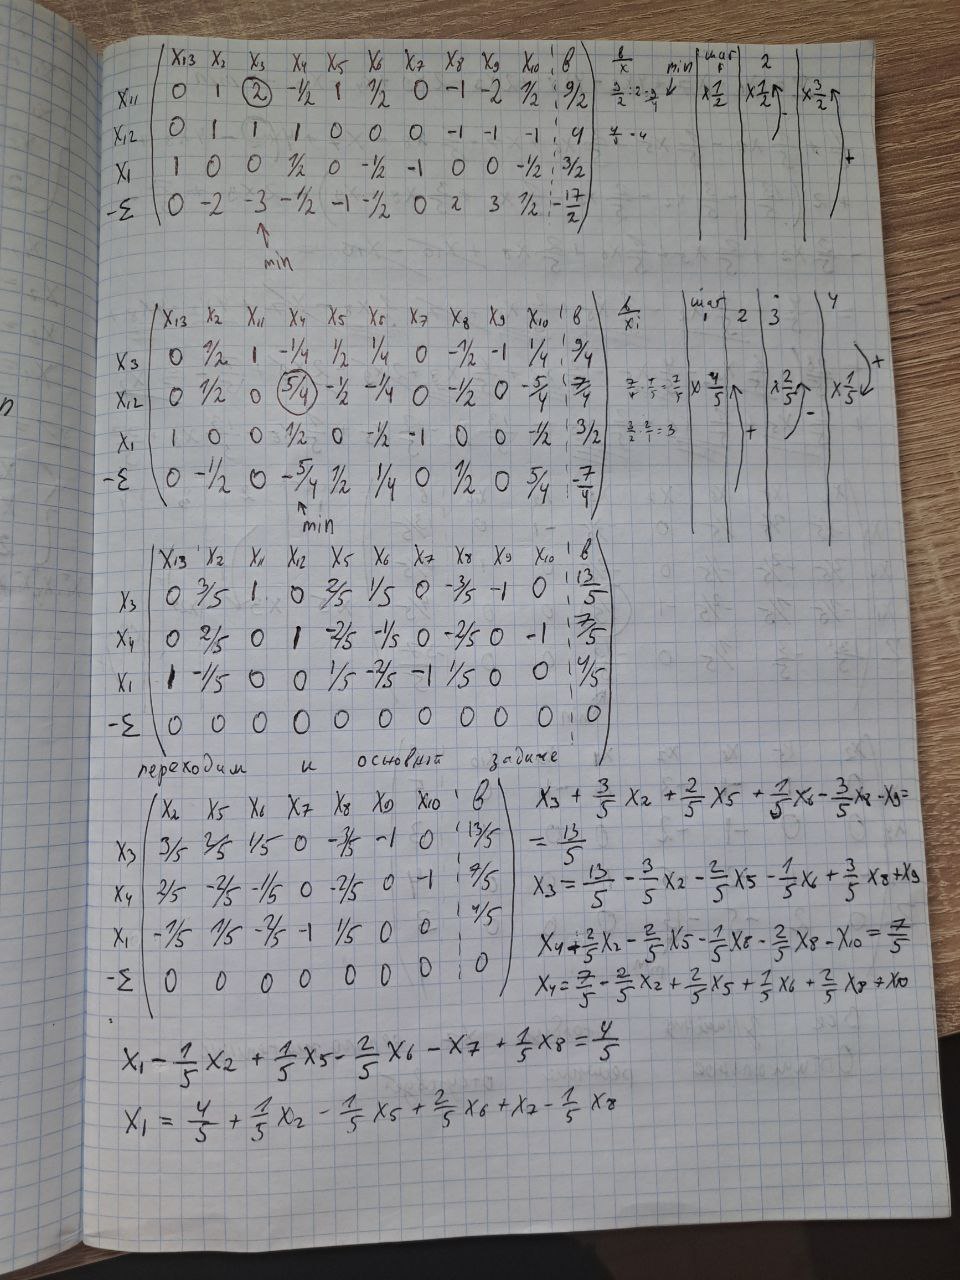 X13 X2 X3 X4 X5 X6 X7 X8 X9 X10 B B/X min шаг 1 2
X11 0 1 2 -1/2 1 1/2 0 -1 -2 1/2 9/2 9/2 : 2 = 9/4 x 1/2 x 1/2 x 3/2
X12 0 1 1 1 0 0 0 -1 -1 -1 4 - +
X1 1 0 0 1/2 0 -1/2 -1 0 0 -1/2 3/2
-Σ 0 -2 -3 -1/2 -1 -1/2 0 2 3 1/2 -17/2
min
X13 X2 X11 X4 X5 X6 X7 X8 X9 X10 B B/Xi шаг 1 2 3 4
X3 0 1/2 1 -1/4 1/2 1/4 0 -1/2 -1 1/4 9/4 +
X12 0 1/2 0 5/4 -1/2 -1/4 0 -1/2 0 -5/4 7/4 x 4/5 x 2/5 x 1/5
X1 1 0 0 1/2 0 -1/2 -1 0 0 -1/2 3/2 3/2 · 2/1 = 3 + -
-Σ 0 -1/2 0 -5/4 1/2 1/4 0 1/2 0 5/4 -7/4
min
X13 X2 X11 X12 X5 X6 X7 X8 X9 X10 B
X3 0 3/5 1 0 2/5 1/5 0 -3/5 -1 0 13/5
X4 0 2/5 0 1 -2/5 -1/5 0 -2/5 0 -1 7/5
X1 1 -1/5 0 0 1/5 -2/5 -1 1/5 0 0 4/5
-Σ 0 0 0 0 0 0 0 0 0 0 0
переходим и основный задаче
X2 X5 X6 X7 X8 X9 X10 B
X3 3/5 2/5 1/5 0 -3/5 -1 0 13/5
X4 2/5 -2/5 -1/5 0 -2/5 0 -1 7/5
X1 -1/5 1/5 -2/5 -1 1/5 0 0 4/5
-Σ 0 0 0 0 0 0 0 0
X3 + 3/5 X2 + 2/5 X5 + 1/5 X6 - 3/5 X8 - X9 =
= 13/5
X3 = 13/5 - 3/5 X2 - 2/5 X5 - 1/5 X6 + 3/5 X8 + X9
X4 + 2/5 X2 - 2/5 X5 - 1/5 X8 - 2/5 X8 - X10 = 7/5
X4 = 7/5 - 2/5 X2 + 2/5 X5 + 1/5 X6 + 2/5 X8 + X10
X1 - 1/5 X2 + 1/5 X5 - 2/5 X6 - X7 + 1/5 X8 = 4/5
X1 = 4/5 + 1/5 X2 - 1/5 X5 + 2/5 X6 + X7 - 1/5 X8